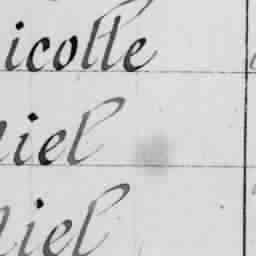 icolle
iel
iel